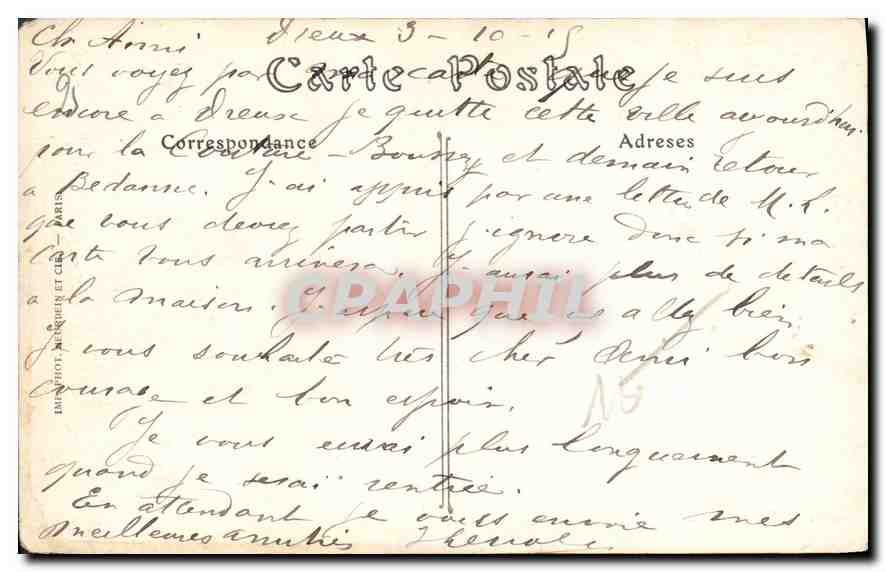 Ch Ami Dreux 3 - 10 - 15
Vous voyez par ma carte que je suis
Carte Postale
encore a Dreux je quitte cette ville aujourd'hui
Correspondance Adreses
pour la Couture - Boussey et demain retour
a Bedanne. J'ai appris par une lettre de M. L.
que vous devez partir j'ignore donc si ma
carte vous arrivera. J'aurai plus de details
a la maison. J'espere que vs allez bien
CPAPHIL
Je vous souhaite très cher Ami bon
courage et bon espoir.
Je vous ecrirai plus longuement
quand je serai rentrée.
En attendant je vous envoie mes
meilleures amitiés
IMP. PHOT. NEURDEIN ET CIE. — PARIS